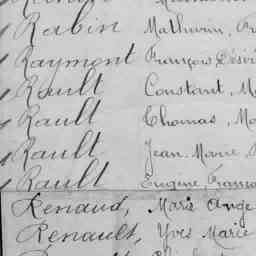 Rabin Mathurin,
Raymont François Désiré
Rault Constant, M
Rault Thomas, Ma
Rault Jean Marie,
Rault Eugène, França
Renaud, Marie Ange
Renault, Yves Marie